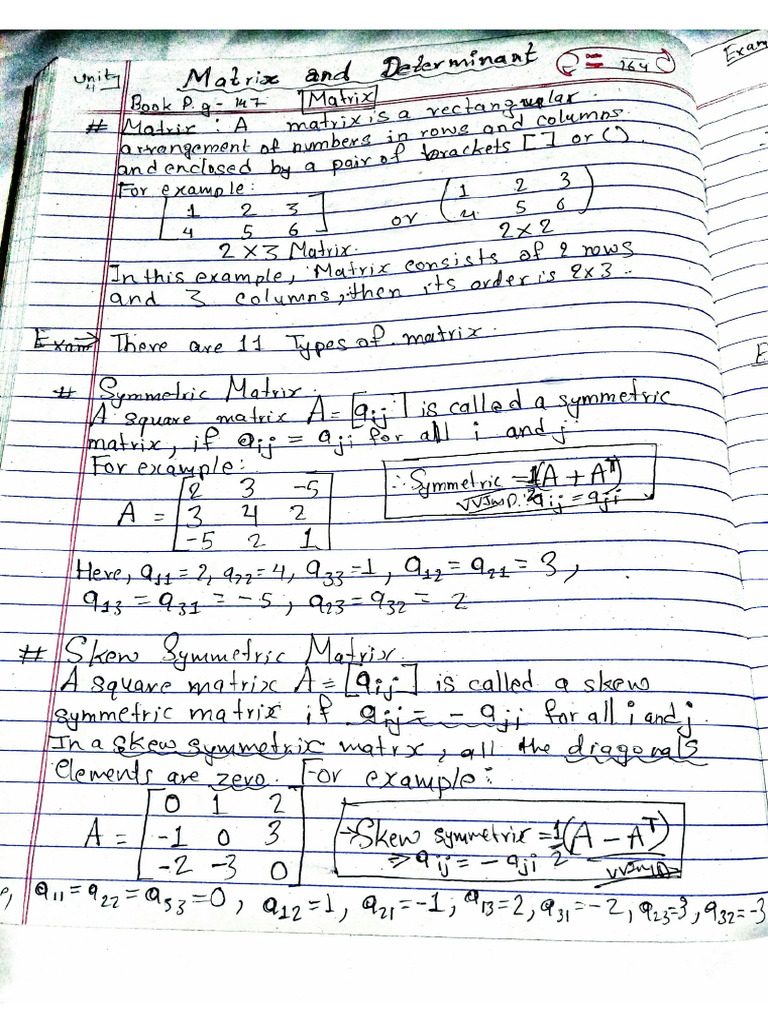 Unit 4 Matrix and Determinant = 164
Book P.g - 147 Matrix
# Matrix : A matrix is a rectangular
arrangement of numbers in rows and columns
and enclosed by a pair of brackets [ ] or ( )
For example:
[ 1 2 3 or ( 1 2 3
4 5 6 ] 4 5 6 )
2 × 3 Matrix. 2 × 2
In this example, Matrix consists of 2 rows
and 3 columns, then its order is 2×3.
Exam ⇒ There are 11 Types of matrix.
# Symmetric Matrix.
A square matrix A = [aij] is called a symmetric
matrix, if aij = aji for all i and j
For example:
∴ Symmetric = 1/2 (A + Aᵀ)
VVImp. ∴ aij = aji
A = [ 2 3 -5
3 4 2
-5 2 1 ]
Here, a11 = 2, a22 = 4, a33 = 1, a12 = a21 = 3,
a13 = a31 = -5, a23 = a32 = 2
# Skew Symmetric Matrix.
A square matrix A = [aij] is called a skew
symmetric matrix if aij = - aji for all i and j.
In a skew symmetric matrx, all the diagonals
Elements are zero. For example:
A = [ 0 1 2
-1 0 3
-2 -3 0 ]
→ Skew symmetric = 1/2 (A - Aᵀ)
⇒ aij = - aji VVImp
a11 = a22 = a33 = 0, a12 = 1, a21 = -1, a13 = 2, a31 = -2, a23 = 3, a32 = -3
Exam